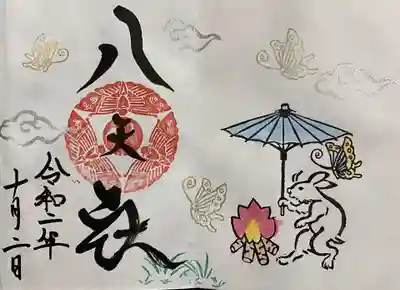 八天
令和二年
十月二日